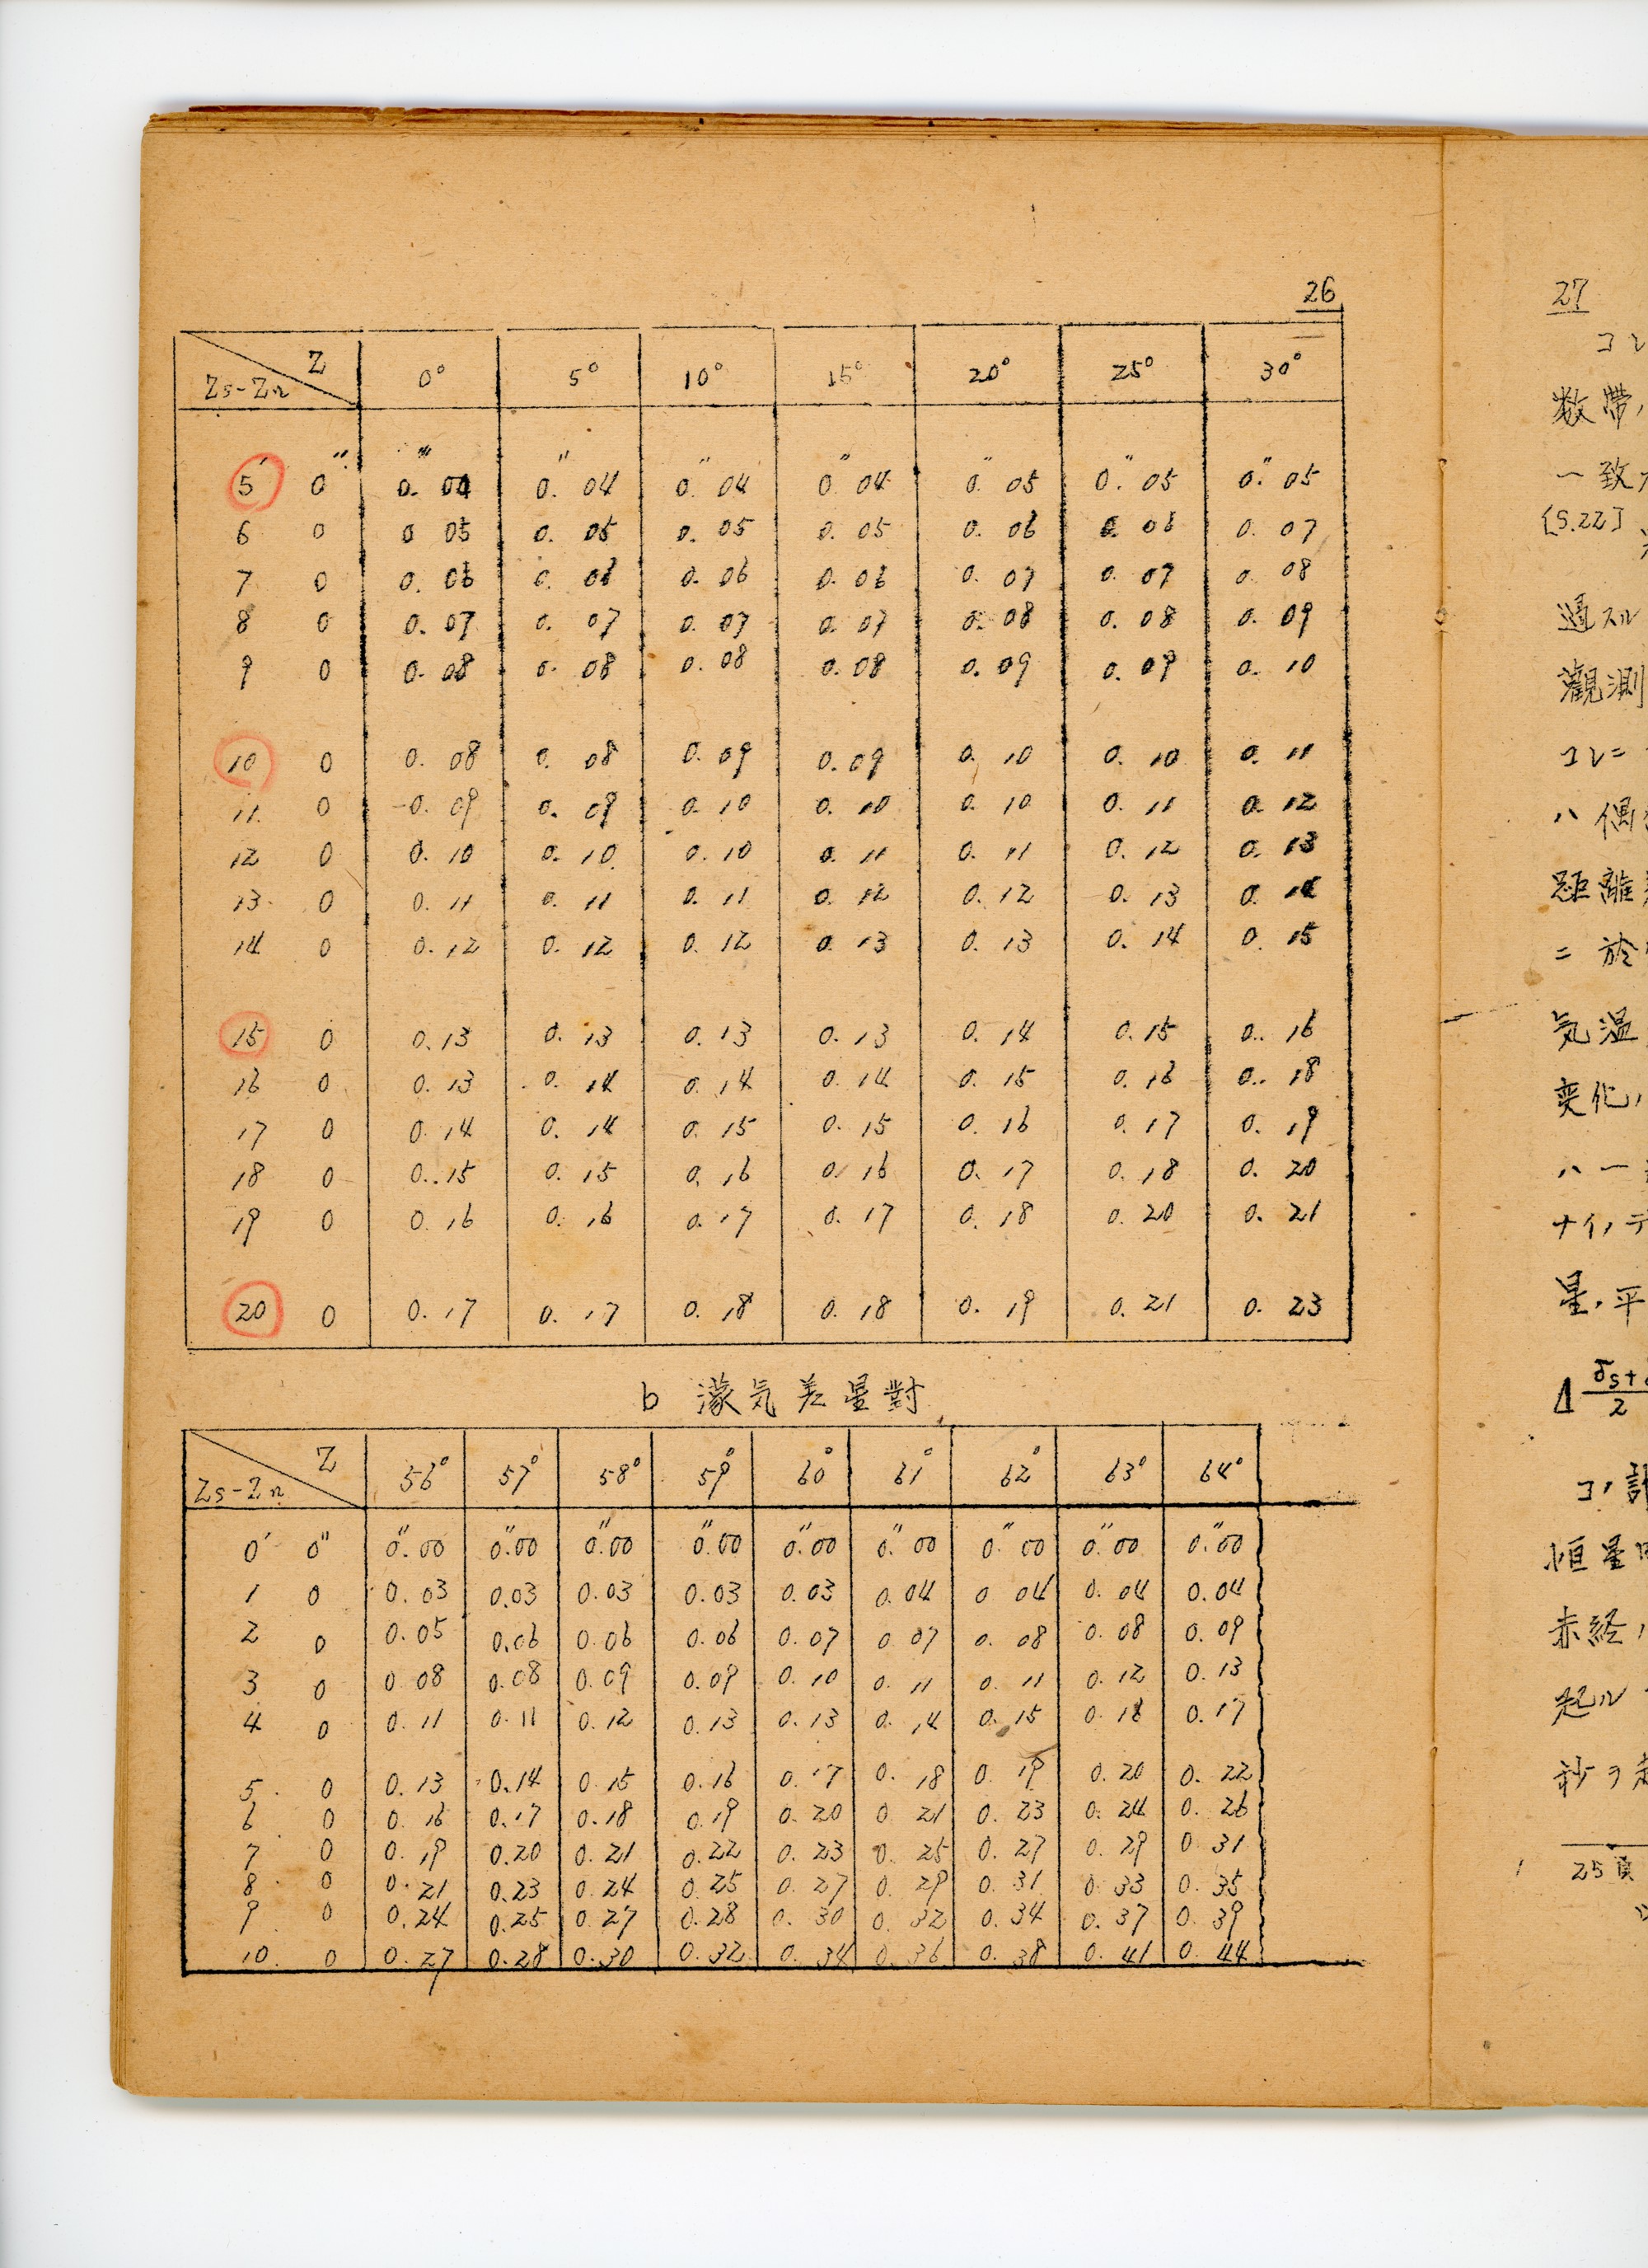 26
Z 0° 5° 10° 15° 20° 25° 30°
Zs-Zn
5′ 0″ 0.″04 0.″04 0.″04 0.″04 0.″05 0.″05 0.″05
6 0 0.05 0.05 0.05 0.05 0.06 0.06 0.07
7 0 0.06 0.06 0.06 0.06 0.07 0.07 0.08
8 0 0.07 0.07 0.07 0.07 0.08 0.08 0.09
9 0 0.08 0.08 0.08 0.08 0.09 0.09 0.10
10 0 0.08 0.08 0.09 0.09 0.10 0.10 0.11
11 0 0.09 0.09 0.10 0.10 0.10 0.11 0.12
12 0 0.10 0.10 0.10 0.11 0.11 0.12 0.13
13 0 0.11 0.11 0.11 0.12 0.12 0.13 0.14
14 0 0.12 0.12 0.12 0.13 0.13 0.14 0.15
15 0 0.13 0.13 0.13 0.13 0.14 0.15 0.16
16 0 0.13 0.14 0.14 0.14 0.15 0.16 0.18
17 0 0.14 0.14 0.15 0.15 0.16 0.17 0.19
18 0 0.15 0.15 0.16 0.16 0.17 0.18 0.20
19 0 0.16 0.16 0.17 0.17 0.18 0.20 0.21
20 0 0.17 0.17 0.18 0.18 0.19 0.21 0.23
b 濛気差星對
Z 56° 57° 58° 59° 60° 61° 62° 63° 64°
Zs-Zn
0′ 0″ 0.″00 0.″00 0.″00 0.″00 0.″00 0.″00 0.″00 0.″00 0.″00
1 0 0.03 0.03 0.03 0.03 0.03 0.04 0.04 0.04 0.04
2 0 0.05 0.06 0.06 0.06 0.07 0.07 0.08 0.08 0.09
3 0 0.08 0.08 0.09 0.09 0.10 0.11 0.11 0.12 0.13
4 0 0.11 0.11 0.12 0.13 0.13 0.14 0.15 0.16 0.17
5 0 0.13 0.14 0.15 0.16 0.17 0.18 0.19 0.20 0.22
6 0 0.16 0.17 0.18 0.19 0.20 0.21 0.23 0.24 0.26
7 0 0.19 0.20 0.21 0.22 0.23 0.25 0.27 0.29 0.31
8 0 0.21 0.23 0.24 0.25 0.27 0.29 0.31 0.33 0.35
9 0 0.24 0.25 0.27 0.28 0.30 0.32 0.34 0.37 0.39
10 0 0.27 0.28 0.30 0.32 0.34 0.36 0.38 0.41 0.44
27
コレ
数帶
一致
[S.22]
過スル
觀測
コレニ
ハ偶
距離
ニ於
気温
変化
ハ一
ナイノデ
星ノ平
Δ δs+ / 2
コノ計
恒星
赤経
起ル
秒ヲ
25頁